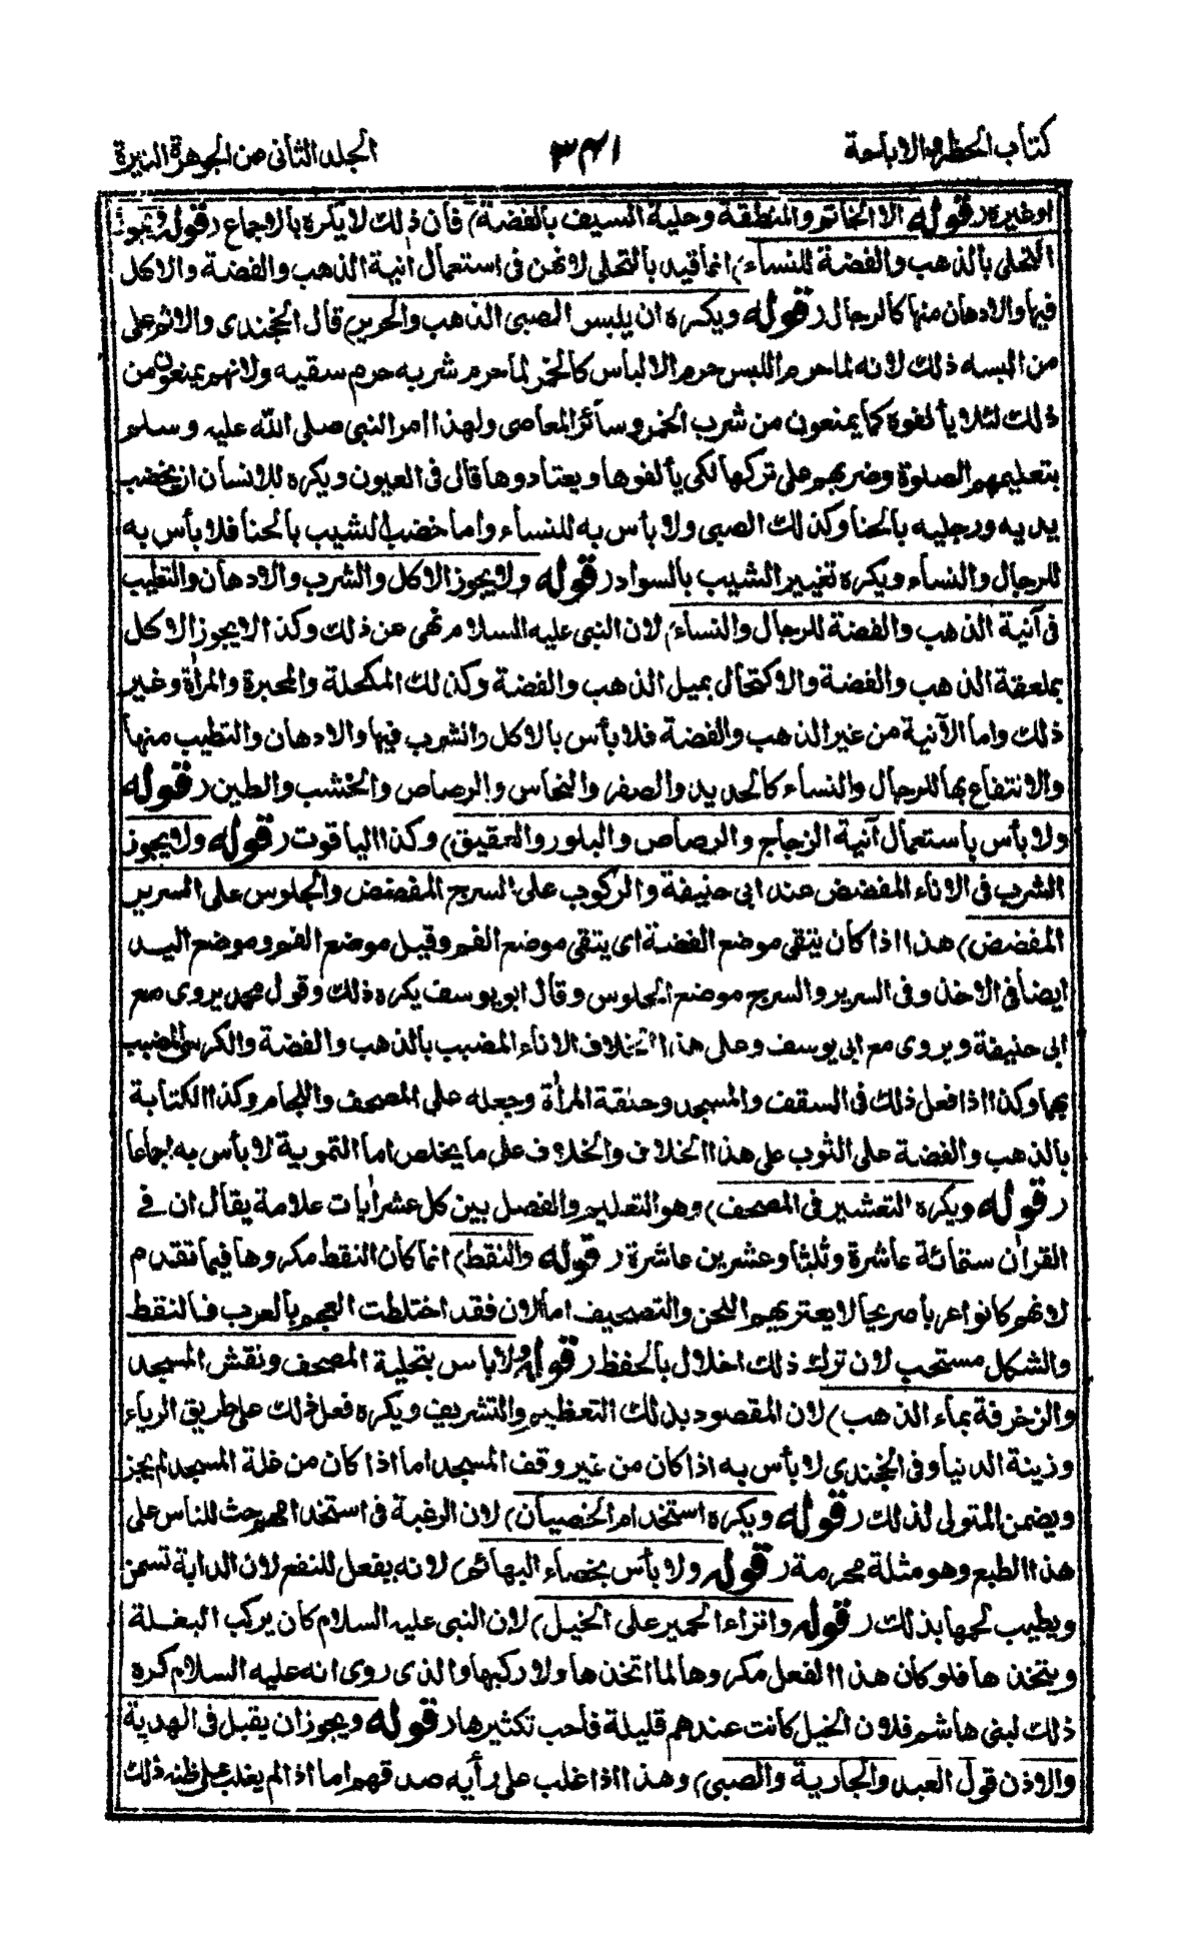 كتاب الحظر والاباحة ٣٤١ الجلد الثانى من الجوهرة النيرة
اوغيره (قوله الا الخاتم والمنطقة وحلية السيف بالفضة) فان ذلك لا يكره بالاجماع (قوله ويجوز
التحلى بالذهب والفضة للنساء) انما قيد بالتحلى لانهن فى استعمال اٰنية الذهب والفضة والاكل
فيها والادهان منها كالرجال (قوله ويكره ان يلبس الصبى الذهب والحرير) قال الخجندى والاثم على
من البسه ذلك لانه لما حرم اللبس حرم الالباس كالخمر لما حرم شربه حرم سقيه ولانهم يمنعون من
ذلك لئلا يألفوه كما يمنعون من شرب الخمر وسائر المعاصى ولهذا امر النبى صلى الله عليه وسلم
بتعليمهم الصلوة وضربهم على تركها لكى يألفوها ويعتادوها قال فى العيون ويكره للانسان ان يخضب
يديه ورجليه بالحنا وكذلك الصبى ولا بأس به للنساء واما خضب الشيب بالحنا فلا بأس به
للرجال والنساء ويكره تغيير الشيب بالسواد (قوله ولا يجوز الاكل والشرب والادهان والتطيب
فى آنية الذهب والفضة للرجال والنساء) لان النبى عليه السلام نهى عن ذلك وكذا لا يجوز الاكل
بملعقة الذهب والفضة والاكتحال بميل الذهب والفضة وكذلك المكحلة والمحبرة والمرأة وغير
ذلك واما الآنية من غير الذهب والفضة فلا بأس بالاكل والشرب فيها والادهان والتطيب منها
والانتفاع بها للرجال والنساء كالحديد والصفر والنحاس والرصاص والخشب والطين (قوله
ولا بأس باستعمال آنية الزجاج والرصاص والبلور والعقيق) وكذا الياقوت (قوله ولا يجوز
الشرب فى الاناء المفضض عند ابى حنيفة والركوب على السرج المفضض والجلوس على السرير
المفضض) هذا اذا كان يتقى موضع الفضة اى يتقى موضع الفم وقيل موضع الفم وموضع اليد
ايضا فى الاخذ وفى السرير والسرج موضع الجلوس وقال ابو يوسف يكره ذلك وقول محمد يروى مع
ابى حنيفة ويروى مع ابى يوسف وعلى هذا الخلاف الاناء المضبب بالذهب والفضة والكرسى المضبب
بها وكذا اذا فعل ذلك فى السقف والمسجد وحلقة المرأة وجعله على المصحف واللجام وكذا الكتابة
بالذهب والفضة على الثوب على هذا الخلاف والخلاف على ما يخلص اما التموية لا بأس به اجماعا
(قوله ويكره التعشير فى المصحف) وهو التعليم والفصل بين كل عشر اٰيات علامة يقال ان فى
القراٰن ستمائة عاشرة وثلثا وعشرين عاشرة (قوله والنقط) انما كان النقط مكروها فيما تقدم
لانهم كانوا عربا صريحا لا يعتريهم اللحن والتصحيف اما الان فقد اختلطت العجم بالعرب فالنقط
والشكل مستحب لان ترك ذلك اخلال بالحفظ (قوله ولا باس بتحلية المصحف ونقش المسجد
والزخرفة بماء الذهب) لان المقصود بذلك التعظيم والتشريف ويكره فعل ذلك على طريق الرياء
وزينة الدنيا وفى الخجندى لا بأس به اذا كان من غير وقف المسجد اما اذا كان من غلة المسجد لم يجز
ويضمن المتولى لذلك (قوله ويكره استخدام الخصيان) لان الرغبة فى استخدامهم حث للناس على
هذا الطبع وهو مثلة محرمة (قوله ولا بأس بخصاء البهائم) لانه يفعل للنفع لان الدابة تسمن
ويطيب لحمها بذلك (قوله وانزاء الحمير على الخيل) لان النبى عليه السلام كان يركب البغلة
ويتخذها فلو كان هذا الفعل مكروها لما اتخذها ولا ركبها والذى روى انه عليه السلام كره
ذلك لبنى هاشم فلان الخيل كانت عندهم قليلة فأحب تكثيرها (قوله ويجوز ان يقبل فى الهدية
والاذن قول العبد والجارية والصبى) وهذا اذا غلب على رأيه صدقهم اما اذا لم يغلب على ظنه ذلك